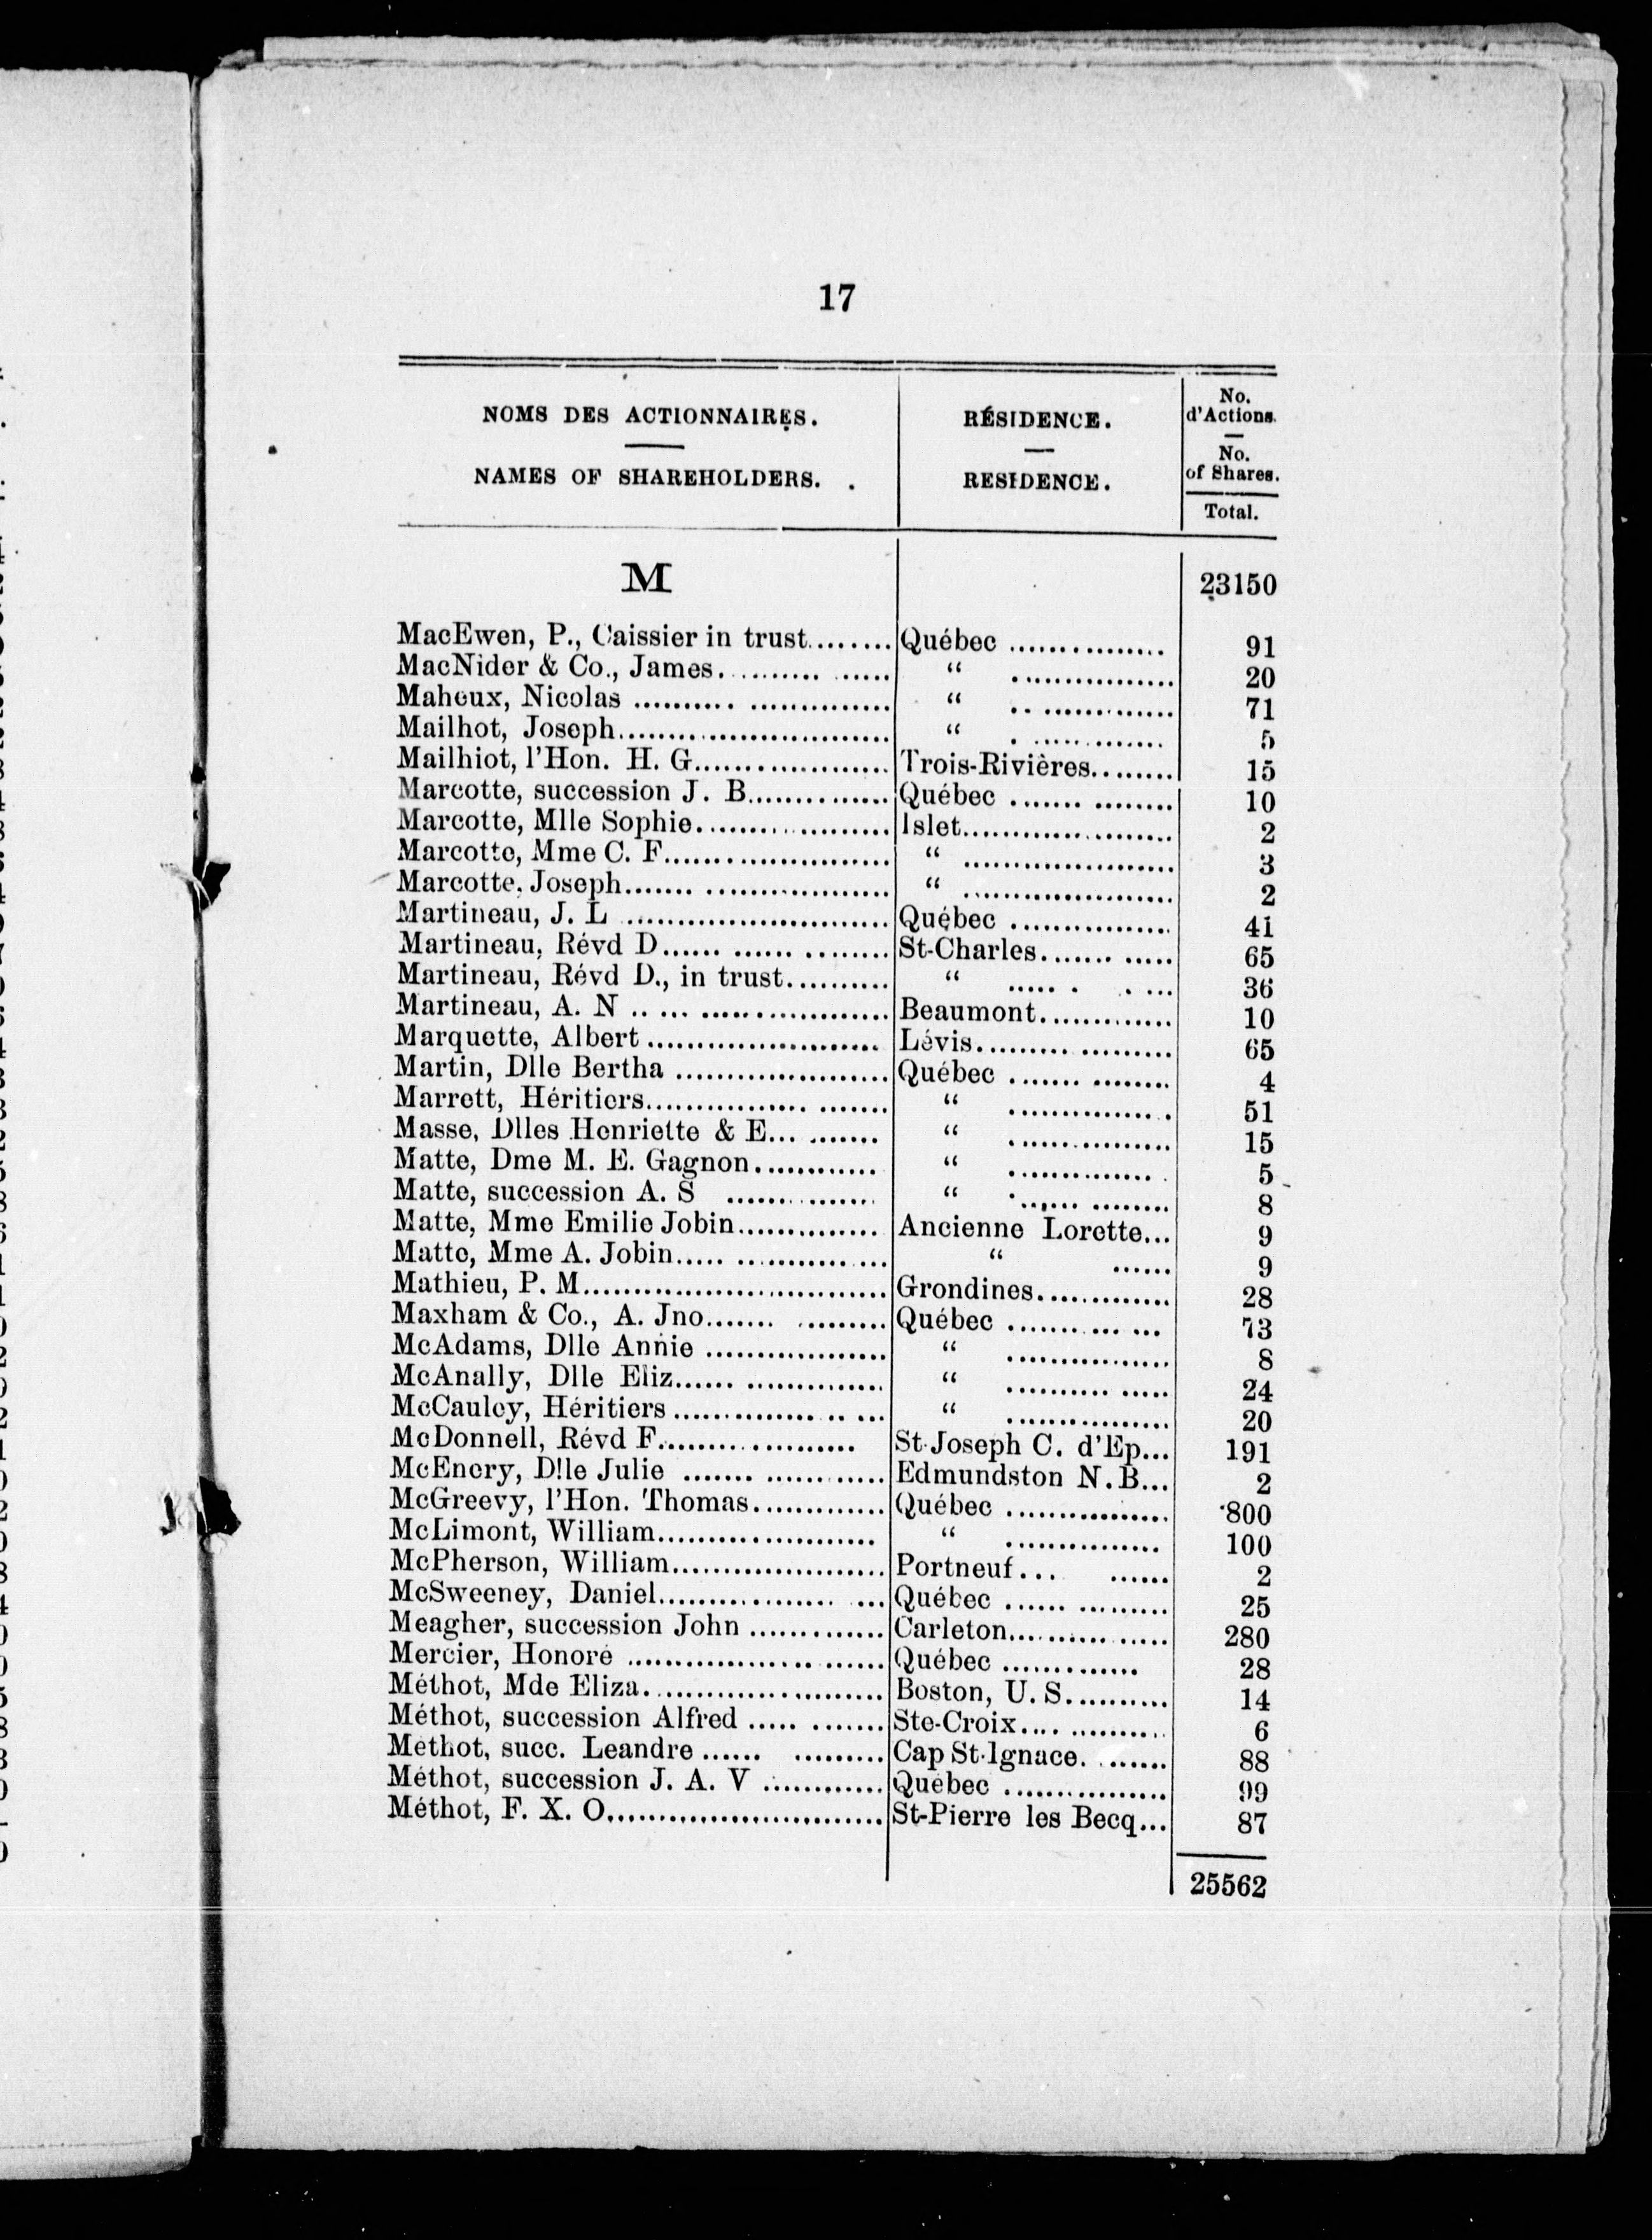 17
NOMS DES ACTIONNAIRES.
NAMES OF SHAREHOLDERS.
RÉSIDENCE.
RESIDENCE.
No.
d'Actions.
No.
of Shares.
Total.
M 23150
MacEwen, P., Caissier in trust........ Québec ............... 91
MacNider & Co., James................. “ ................ 20
Maheux, Nicolas ........................ “ ............... 71
Mailhot, Joseph............................ “ .............. 5
Mailhiot, l'Hon. H. G.................... Trois-Rivières........ 15
Marcotte, succession J. B............... Québec ............... 10
Marcotte, Mlle Sophie.................... Islet...................... 2
Marcotte, Mme C. F....................... “ ...................... 3
Marcotte, Joseph.......................... “ ...................... 2
Martineau, J. L ........................... Québec ................ 41
Martineau, Révd D....................... St-Charles............ 65
Martineau, Révd D., in trust........... “ .......... 36
Martineau, A. N .......................... Beaumont............. 10
Marquette, Albert ........................ Lévis................... 65
Martin, Dlle Bertha ...................... Québec ............... 4
Marrett, Héritiers........................ “ ................ 51
Masse, Dlles Henriette & E.......... “ ................. 15
Matte, Dme M. E. Gagnon............. “ ............... 5
Matte, succession A. S ............... “ ............... 8
Matte, Mme Emilie Jobin............... Ancienne Lorette... 9
Matte, Mme A. Jobin.................... “ ...... 9
Mathieu, P. M................................ Grondines.............. 28
Maxham & Co., A. Jno................ Québec .............. 73
McAdams, Dlle Annie ................... “ ................. 8
McAnally, Dlle Eliz..................... “ ............... 24
McCauley, Héritiers ..................... “ ................. 20
McDonnell, Révd F..................... St-Joseph C. d'Ep... 191
McEnery, Dlle Julie ..................... Edmundston N. B... 2
McGreevy, l'Hon. Thomas.............. Québec ................. 800
McLimont, William....................... “ ................ 100
McPherson, William...................... Portneuf... ...... 2
McSweeney, Daniel..................... Québec ............... 25
Meagher, succession John .............. Carleton................. 280
Mercier, Honoré .......................... Québec .............. 28
Méthot, Mde Eliza........................ Boston, U. S........... 14
Méthot, succession Alfred ............ Ste-Croix.............. 6
Méthot, succ. Leandre ...... ......... Cap St-Ignace......... 88
Méthot, succession J. A. V ............ Québec ................. 99
Méthot, F. X. O............................. St-Pierre les Becq... 87
25562